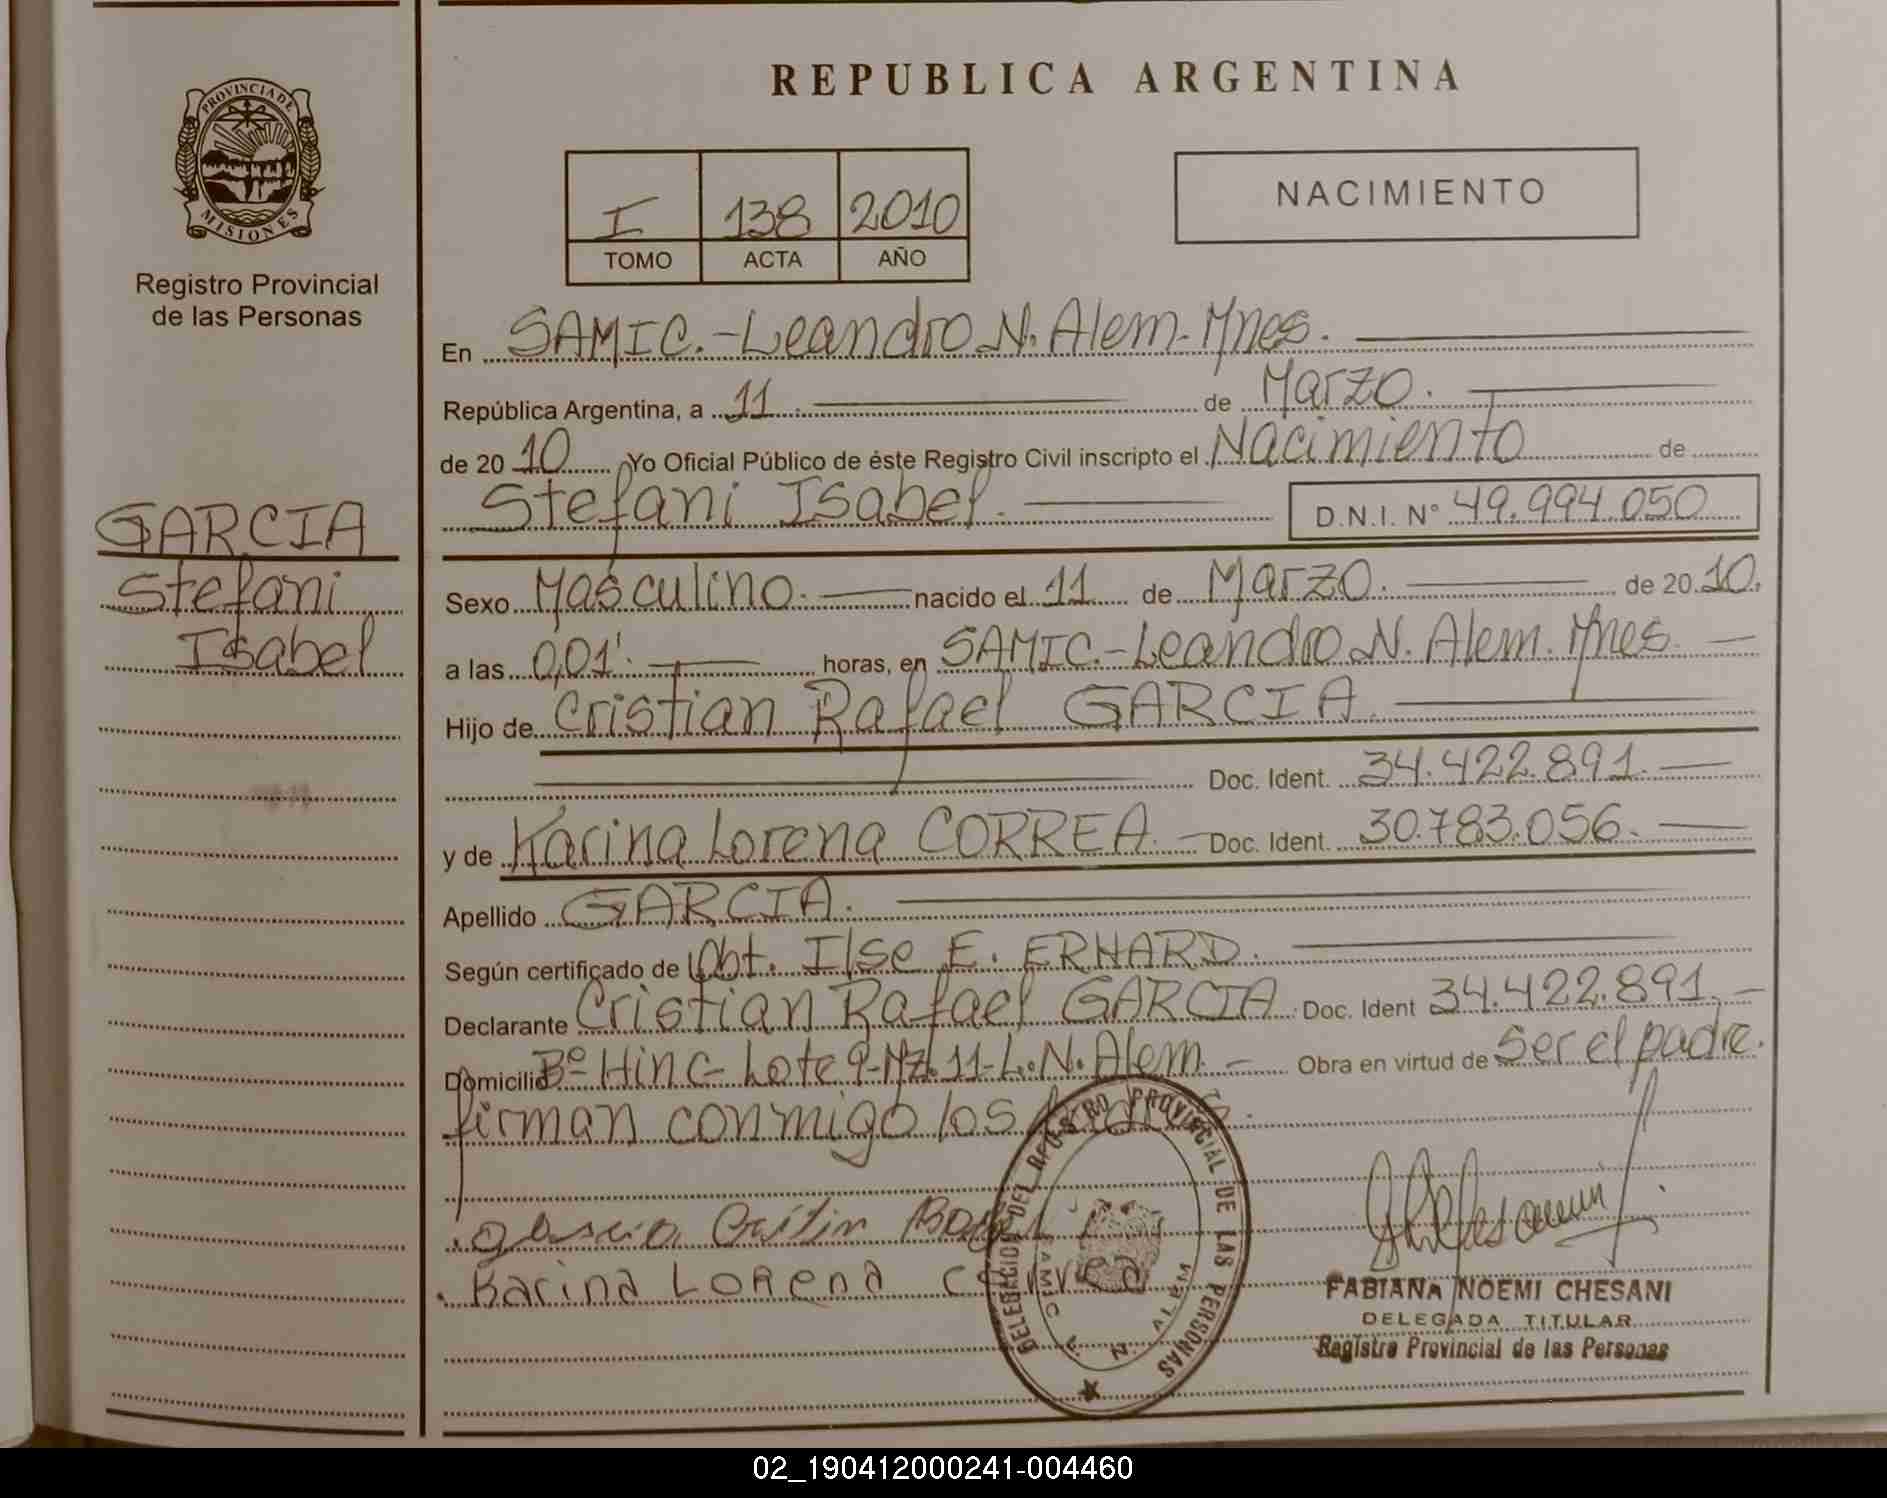 REPUBLICA ARGENTINA
PROVINCIA DE
MISIONES
Registro Provincial
de las Personas
I 138 2010
TOMO ACTA AÑO
NACIMIENTO
En SAMIC.-Leandro N. Alem. Mnes.
República Argentina, a 11. de Marzo.
de 2010 Yo Oficial Público de éste Registro Civil inscripto el Nacimiento de
Stefani Isabel. D.N.I. N° 49.994.050
GARCIA
Stefani
Isabel
Sexo Masculino. nacido el 11 de Marzo. de 2010.
a las 0,01'. horas, en SAMIC.-Leandro N. Alem. Mnes.
Hijo de Cristian Rafael GARCIA.
Doc. Ident. 34.422.891.
y de Karina Lorena CORREA. Doc. Ident. 30.783.056.
Apellido GARCIA.
Según certificado de Obt. Ilse E. ERHARD.
Declarante Cristian Rafael GARCIA. Doc. Ident 34.422.891.
Domicilio Bº Hinc- Lote 9-Mz.11-L.N.Alem. Obra en virtud de Ser el padre.
firman conmigo los
Karina LoRena correa
DELEGACION DEL REGISTRO PROVINCIAL DE LAS PERSONAS
SAMIC
FABIANA NOEMI CHESANI
DELEGADA TITULAR
Registro Provincial de las Personas
02_190412000241-004460